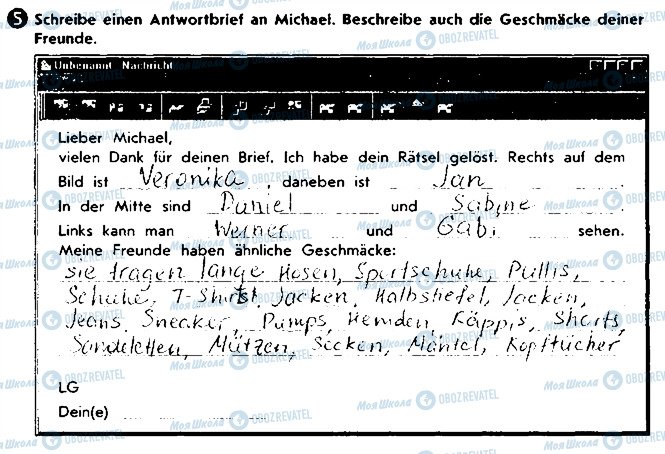 5 Schreibe einen Antwortbrief an Michael. Beschreibe auch die Geschmäcke deiner
Freunde.
Unbenannt Nachricht
Lieber Michael,
vielen Dank für deinen Brief. Ich habe dein Rätsel gelöst. Rechts auf dem
Bild ist Veronika, daneben ist Jan.
In der Mitte sind Daniel und Sabine
Links kann man Werner und Gabi sehen.
Meine Freunde haben ähnliche Geschmäcke:
sie tragen lange Hosen, Sportschuhe, Pullis,
Schuhe, T-Shirts, Jacken, Halbstiefel, Jacken,
Jeans, Sneaker, Pumps, Hemden, Käppis, Shorts,
Sandeletten, Mützen, Socken, Mäntel, Kopftücher
LG
Dein(e)
Моя Школа OBOZREVATEL